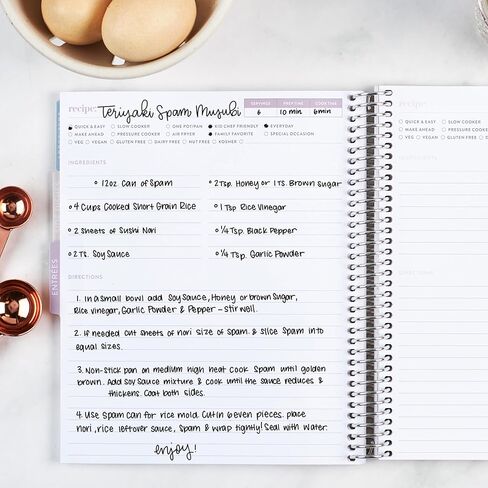 recipe: Teriyaki Spam Musubi
SERVINGS PREP TIME COOK TIME
6 10 min 6min
QUICK & EASY SLOW COOKER ONE POT/PAN KID CHEF FRIENDLY EVERYDAY
MAKE AHEAD PRESSURE COOKER AIR FRYER FAMILY FAVORITE SPECIAL OCCASION
VEG VEGAN GLUTEN FREE DAIRY FREE NUT FREE KOSHER
INGREDIENTS
12oz can of Spam
2 Tsp. Honey or 1 Ts. Brown Sugar
4 Cups Cooked Short Grain Rice
1 Tsp Rice Vinegar
2 Sheets of Sushi Nori
1/4 Tsp. Black Pepper
2 Ts. Soy Sauce
1/4 Tsp. Garlic Powder
DIRECTIONS
1. In a small bowl add Soy Sauce, Honey or brown Sugar,
Rice vinegar, Garlic Powder & Pepper - stir well.
2. If needed cut sheets of nori size of spam. & slice Spam into
equal sizes.
3. Non-stick pan on medium high heat cook Spam until golden
brown. Add soy sauce mixture & cook until the sauce reduces &
thickens. Coat both sides.
4. Use Spam can for rice mold. Cut in 6 even pieces. place
nori, rice leftover sauce, Spam & wrap tightly! Seal with water.
enjoy!
ENTRÉES
recipe:
QUICK & EASY SLOW COOKER
MAKE AHEAD PRESSURE COOKER
VEG VEGAN GLUTEN FREE
INGREDIENTS
DIRECTIONS